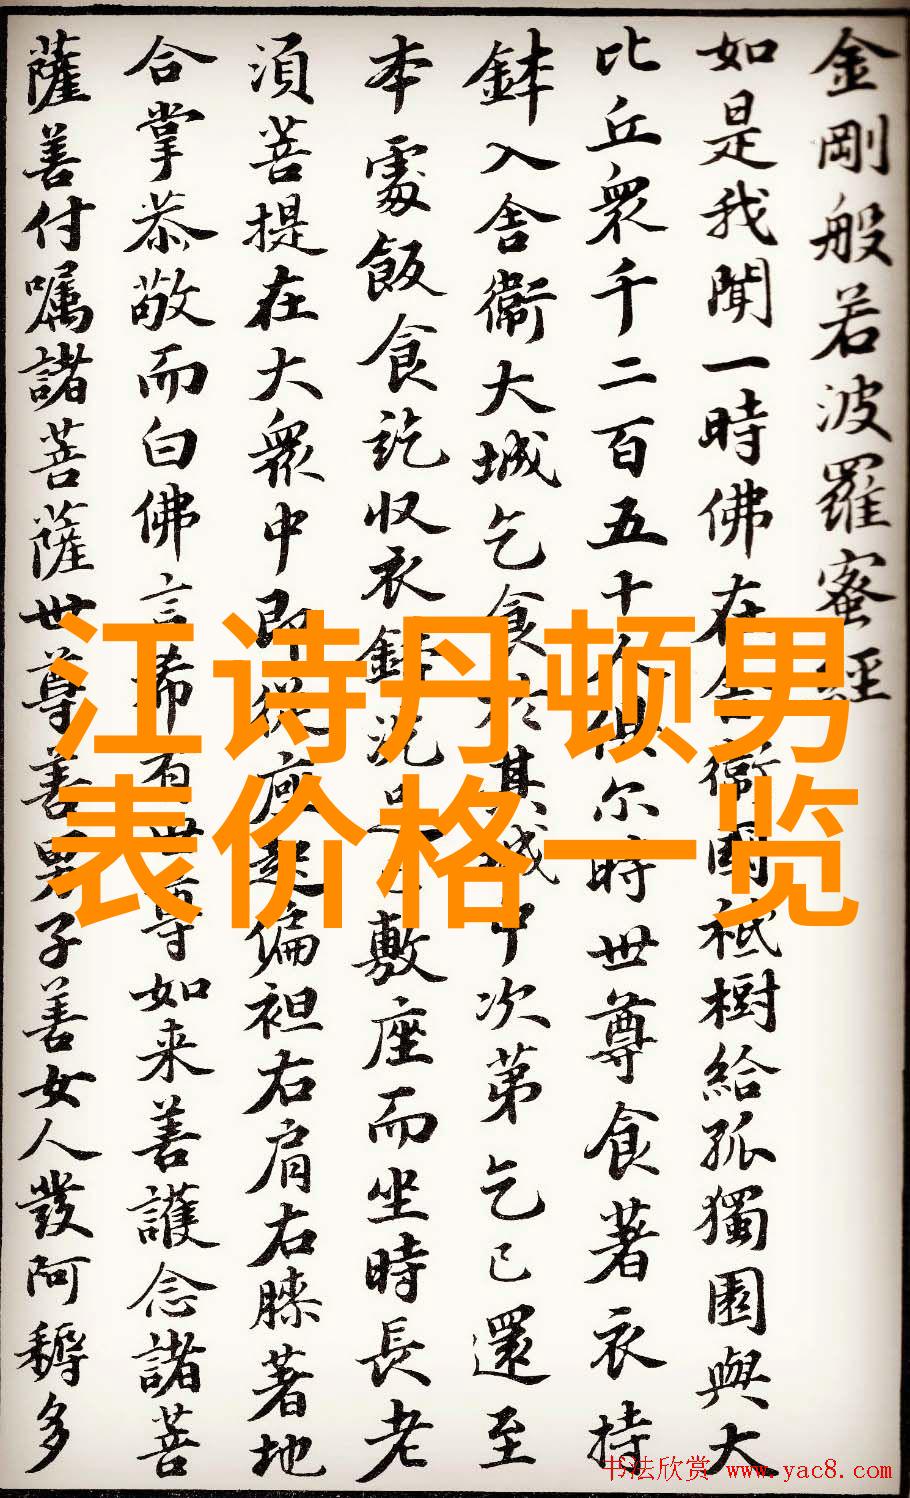 金剛般若波羅蜜經
如是我聞一時佛在舍衞國祗樹給孤獨園與大
比丘衆千二百五十人俱尔時世尊食著衣持
鉢入舍衞大城乞食於其城中次第乞已還至
本處飯食訖收衣鉢洗足已敷座而坐時長老
須菩提在大衆中即從座起偏袒右肩右膝著地
合掌恭敬而白佛言希有世尊如来善護念諸菩
薩善付嘱諸菩薩世尊善男子善女人發阿耨多
江诗丹顿男
表价格一览
书法欣赏 www.yac8.com